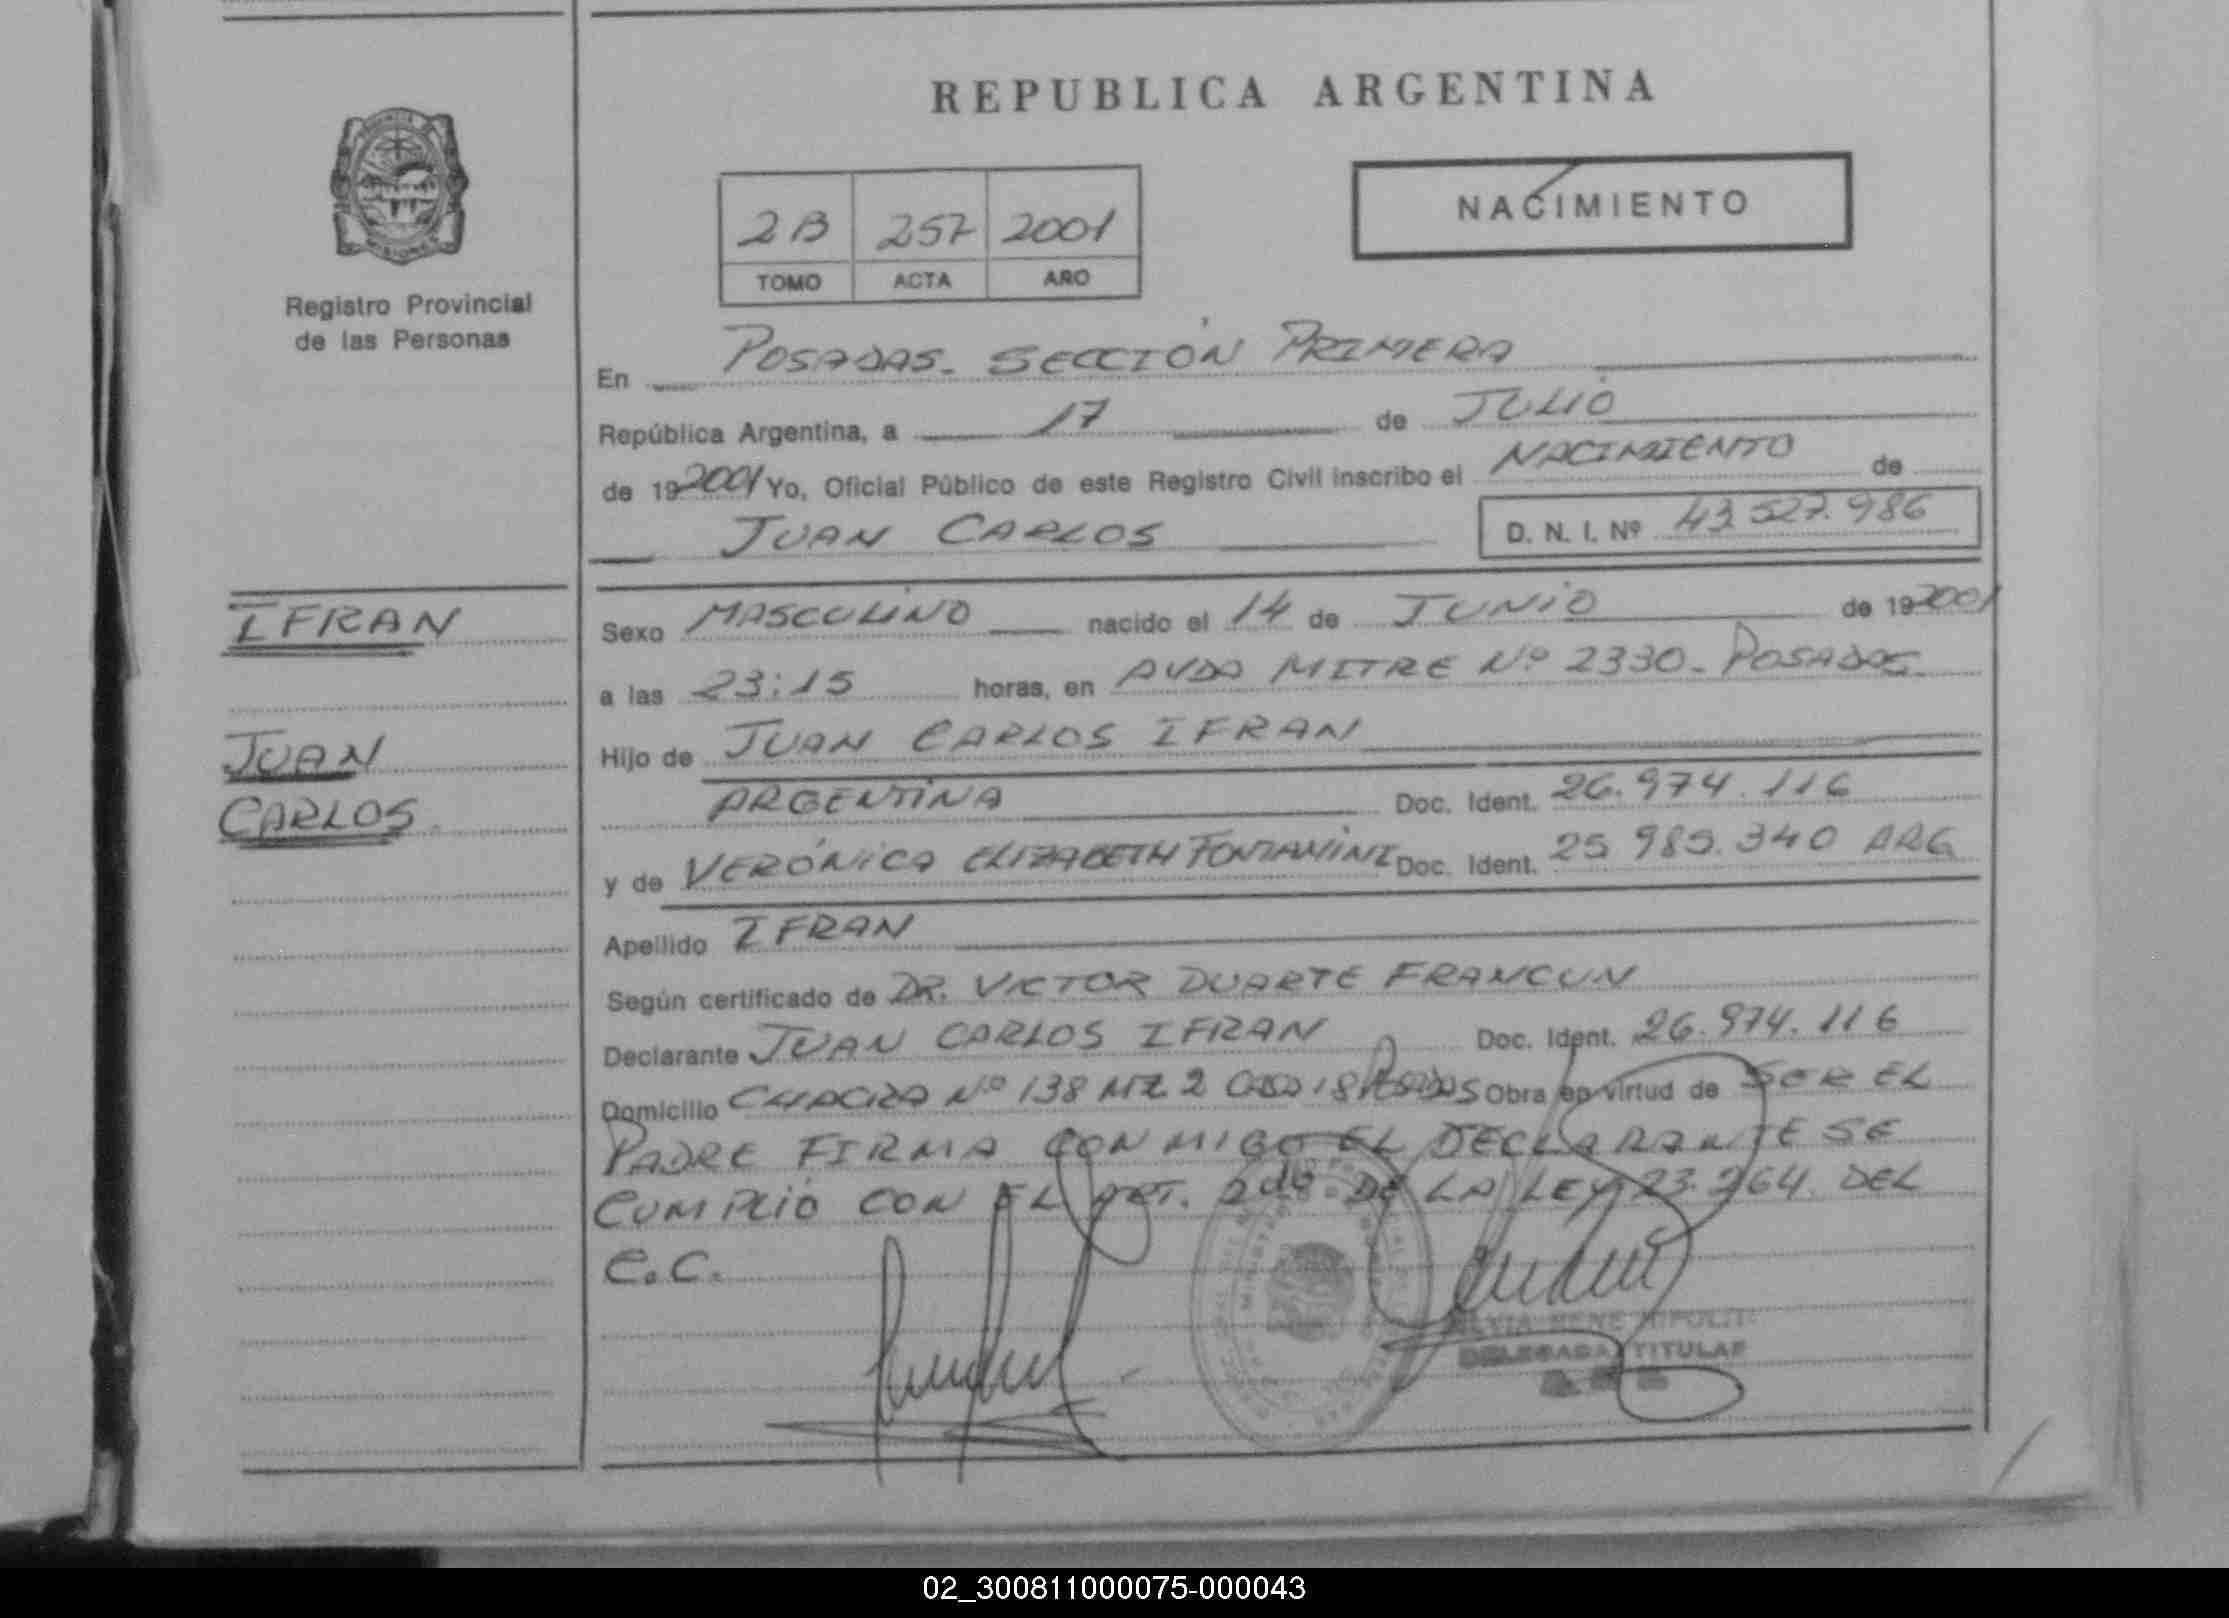 REPUBLICA ARGENTINA
2B 257 2001
TOMO ACTA AÑO
NACIMIENTO
Registro Provincial
de las Personas
En POSADAS. SECCIÓN PRIMERA
República Argentina, a 17 de JULIO
de 192001 Yo, Oficial Público de este Registro Civil inscribo el NACIMIENTO de
JUAN CARLOS D. N. I. Nº 43.527.986
IFRAN
JUAN
CARLOS
Sexo MASCULINO nacido el 14 de JUNIO de 192001
a las 23:15 horas, en AVDA MITRE Nº 2330. POSADAS
Hijo de JUAN CARLOS IFRAN
ARGENTINA Doc. Ident. 26.974.116
y de VERÓNICA ELIZABETH FONTANINI Doc. Ident. 25 985.340 ARG
Apellido IFRAN
Según certificado de DR. VICTOR DUARTE FRANCUN
Declarante JUAN CARLOS IFRAN Doc. Ident. 26.974.116
Domicilio CHACRA Nº 138 MZ 2 CASA 18 POSADAS Obra en virtud de SER EL
PADRE FIRMA CONMIGO EL DECLARANTE SE
CUMPLIÓ CON EL ART. 2do DE LA LEY 23.264. DEL
C.C.
DELEGADA TITULAR
02_300811000075-000043